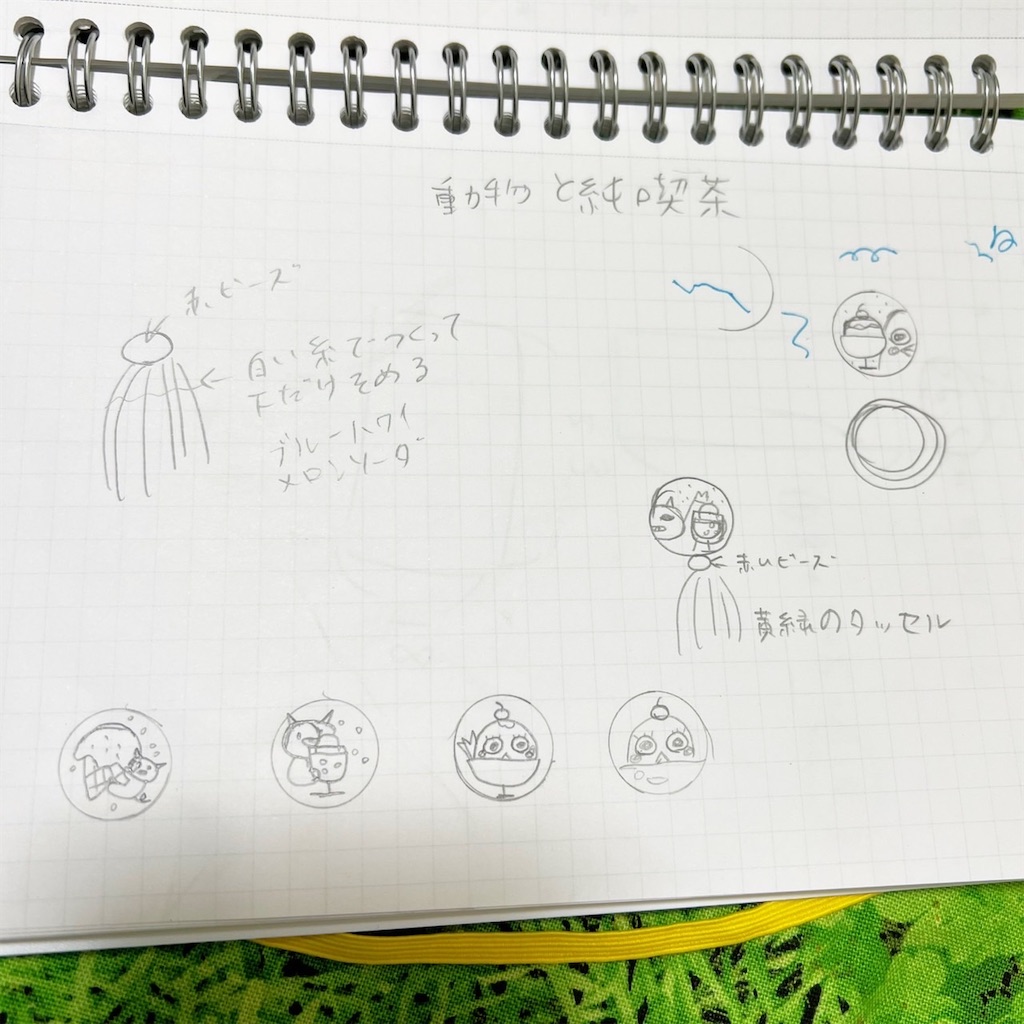 動物と純喫茶
赤いビーズ
白い糸でつくって
下だけそめる
ブルーハワイ
メロンソーダ
赤いビーズ
黄緑のタッセル